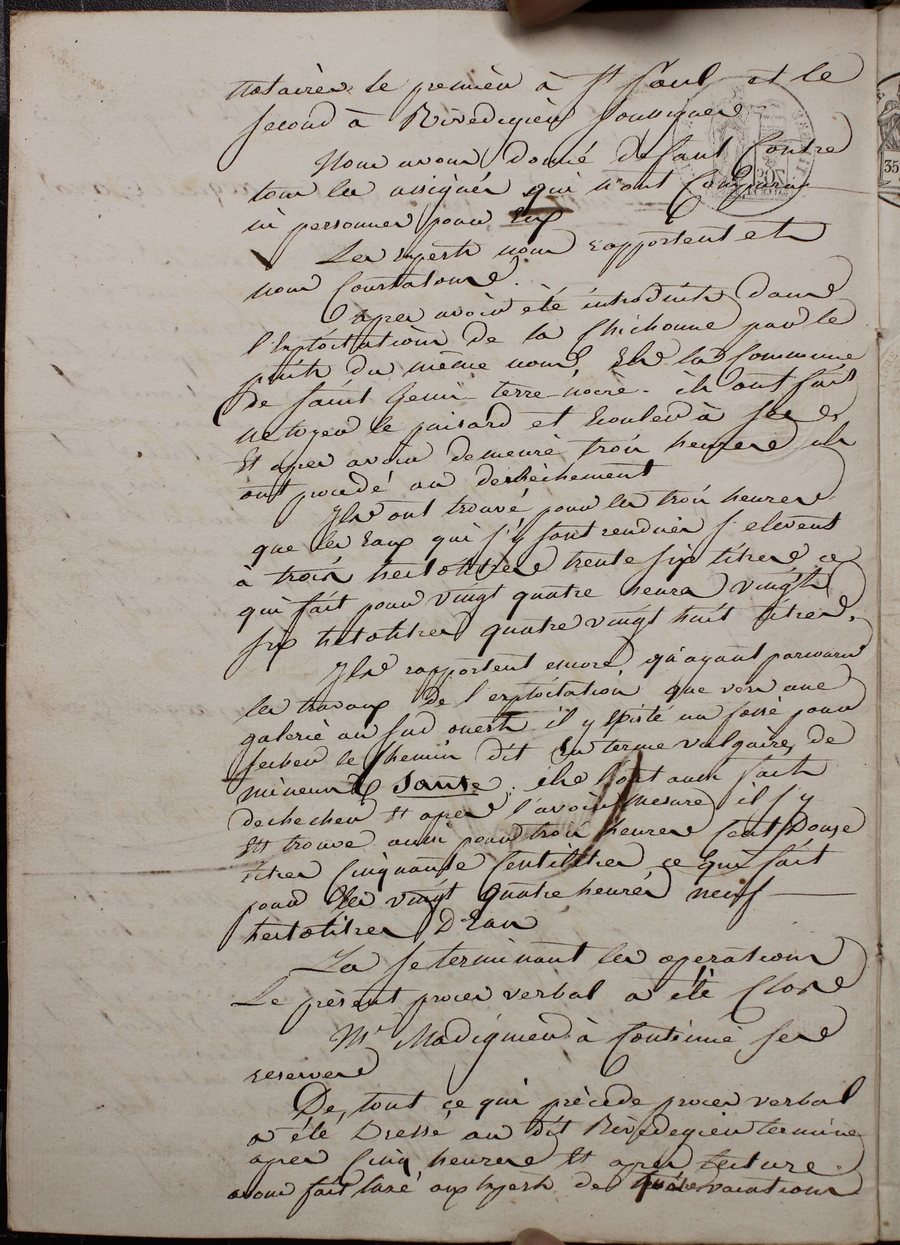 notaires le premier à St Paul et le
second à Rivedegier soussignés
Nous avons donné defaut contre
tous les assignés qui n'ont comparus
ni personnes pour eux
Les experts nous rapportent et
nous constatons
Qu'apres avoir été introduits dans
l'exploitation de la Chichonne par le
puits du même nom, sur la Commune
de Saint Genis terre noire. ils ont fait
netoyer le puisard et couler à sec,
Et apres avoir demeuré trois heures ils
ont procédé au dechèchement
Ils ont trouvé pour les trois heures
que les eaux qui s'y sont rendues s'elevent
à trois hectolitres trente six litres ce
qui fait pour vingt quatre heures vingt
six hectolitres quatre vingt huit litres.
Ils rapportent encore qu'ayant parcouru
les travaux De l'exploitation que vers une
galerie au sud ouest il y existe un fossé pour
secher le chemin dit en terme vulgaire de
mineurs Sause. ils l'ont aussi fait
dechecher et apres l'avoir mesuré il s'y
est trouvé aussi pour trois heures cent Douze
litres cinquante centilitres ce qui fait
pour les vingt quatre heures neuf
hectolitres D'Eau
La se terminant les operations
Le présent proces verbal a été Clos
Mr Madigner à Continué ses
reserves
De tout ce qui précède proces verbal
a été Dressé au dit Rivedegier terminé
apres cinq heures et apres lecture
avons fait taxé aux experts de vacations